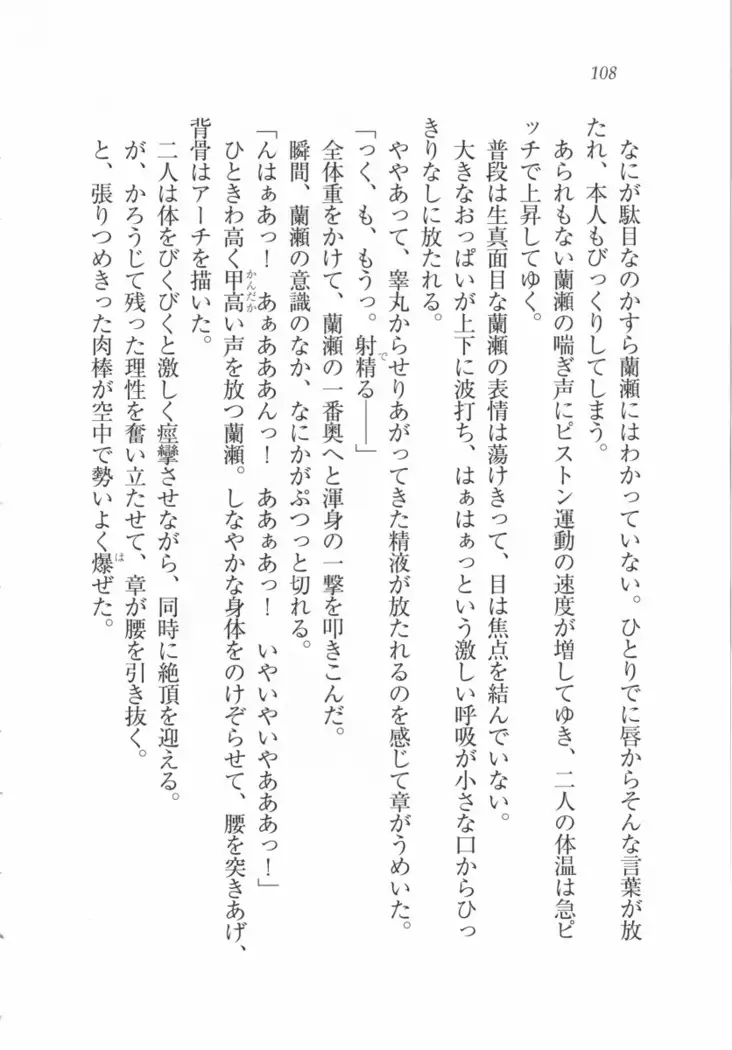 108
なにが駄目なのかすら蘭瀬にはわかっていない。ひとりでに唇からそんな言葉が放
たれ、本人もびっくりしてしまう。
あられもない蘭瀬の喘ぎ声にピストン運動の速度が増してゆき、二人の体温は急ピ
ッチで上昇してゆく。
普段は生真面目な蘭瀬の表情は蕩けきって、目は焦点を結んでいない。
大きなおっぱいが上下に波打ち、はぁはぁっという激しい呼吸が小さな口からひっ
きりなしに放たれる。
ややあって、睾丸からせりあがってきた精液が放たれるのを感じて章がうめいた。
「っく、も、もうっ。射精る――」
で
全体重をかけて、蘭瀬の一番奥へと渾身の一撃を叩きこんだ。
瞬間、蘭瀬の意識のなか、なにかがぷつっと切れる。
「んはぁあっ！　あぁあああんっ！　ああぁあっ！　いやいやいやあああっ！」
ひときわ高く甲高い声を放つ蘭瀬。しなやかな身体をのけぞらせて、腰を突きあげ、
かんだか
背骨はアーチを描いた。
二人は体をびくびくと激しく痙攣させながら、同時に絶頂を迎える。
が、かろうじて残った理性を奮い立たせて、章が腰を引き抜く。
と、張りつめきった肉棒が空中で勢いよく爆ぜた。
は